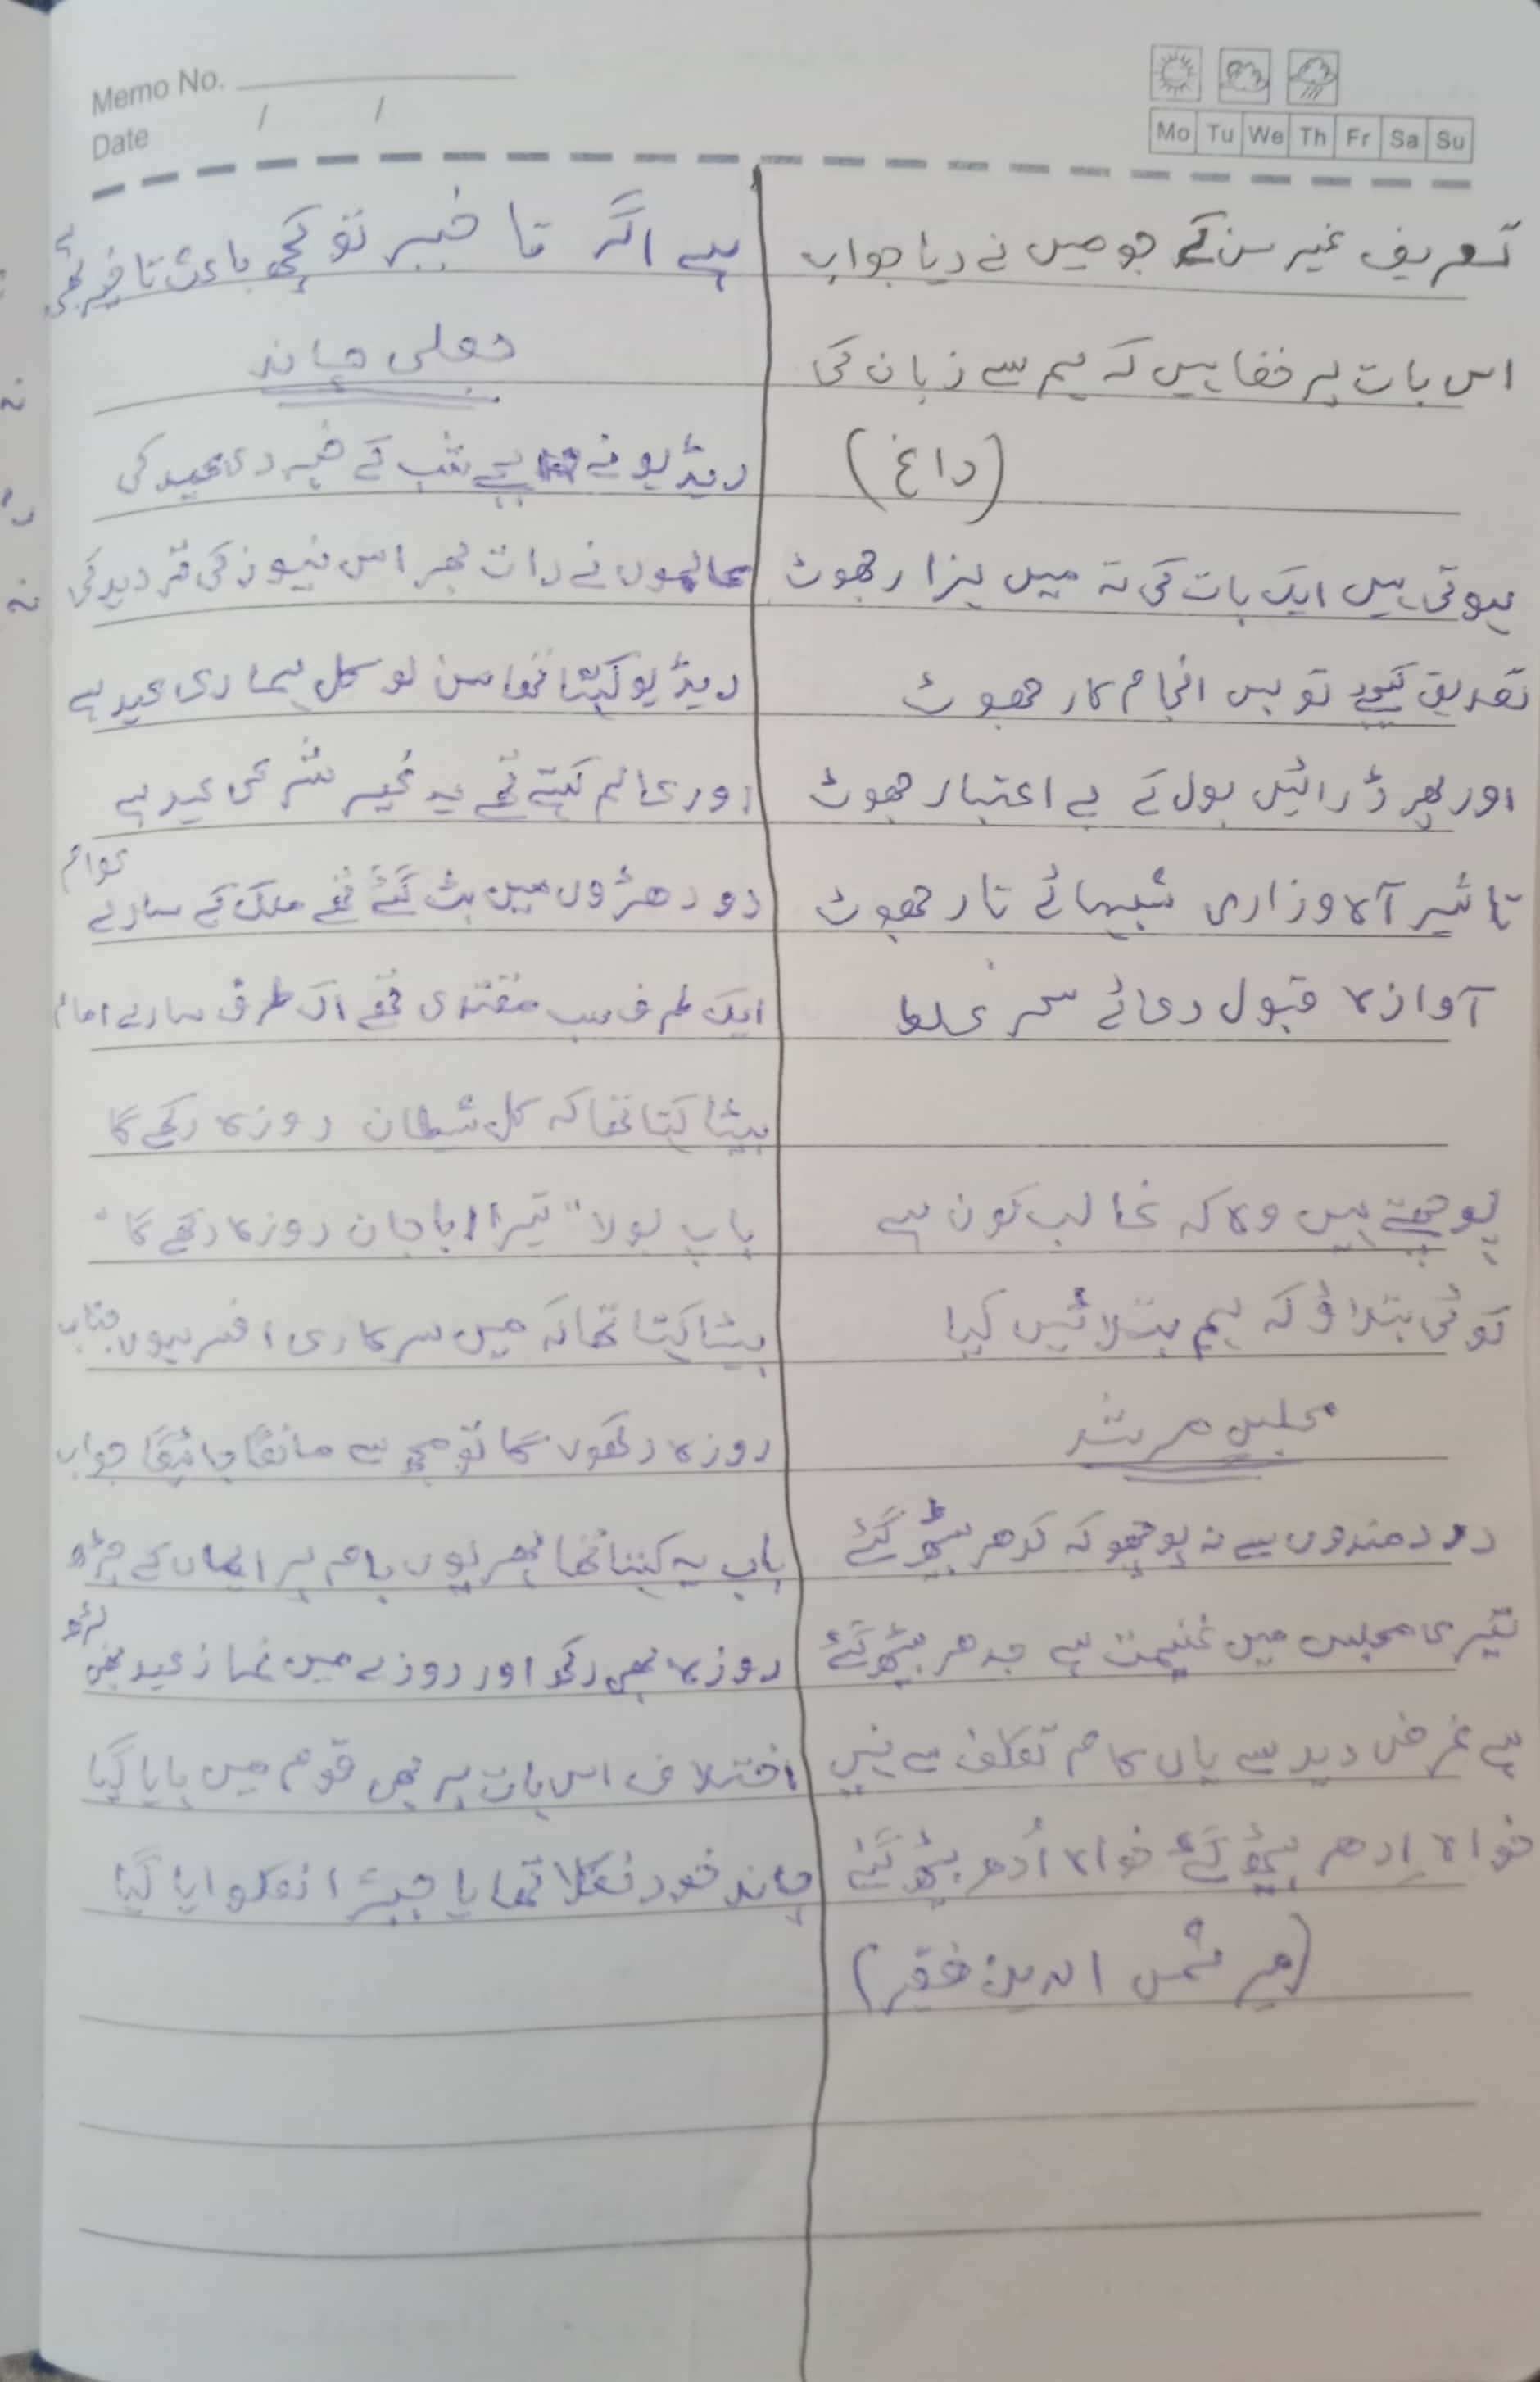 Memo No.
Date / /
Mo Tu We Th Fr Sa Su
تعریف غیر سن کے جو میں نے دیا جواب
اس بات پر خفا ہیں کہ ہم سے زبان کی
(داغ)
ہوتی ہیں ایک بات کی تہ میں ہزار جھوٹ
تصدیق کیجیے تو بس انجام کار جھوٹ
اور پھر ڈرائیں بول کے بے اعتبار جھوٹ
تاثیر آہ و زاری شبہائے تار جھوٹ
آوازہ قبول دعائے سحر غلط
پوچھتے ہیں وہ کہ غالب کون ہے
کوئی بتلاؤ کہ ہم بتلائیں کیا
مجلسِ مرشد
درد مندوں سے نہ پوچھو کہ کدھر بیٹھ گئے
تیری مجلس میں غنیمت ہے جدھر بیٹھ گئے
ہے غرض دید سے یاں کام تکلف سے نہیں
خواہ اِدھر بیٹھ گئے خواہ اُدھر بیٹھ گئے
(میر شمس الدین فقیر)
ہے اگر تا خیر تو کچھ باعث تاخیر بھی
جعلی چاند
ریڈیو نے بجے شب کے خبر دی عید کی
عالموں نے رات بھر اس نیوز کی تردید کی
ریڈیو کہتا تھا سن لو کل ہماری عید ہے
اور عالم کہتے تھے یہ غیر شرعی عید ہے
دو دھڑوں میں بٹ گئے تھے ملک کے سارے عوام
ایک طرف سب مقتدی تھے اک طرف سارے امام
بیٹا کہتا تھا کہ کل شیطان روزہ رکھے گا
باپ بولا "تیرا ابا جان روزہ رکھے گا"
بیٹا کہتا تھا کہ میں سرکاری افسر ہوں جناب
روزہ رکھوں گا تو مجھ سے مانگا جائیگا جواب
باپ یہ کہتا تھا پھر یوں بام پر ایماں کے چڑھ
روزہ بھی رکھ اور روزے میں نماز عید بھی پڑھ
اختلاف اس بات پر بھی قوم میں پایا گیا
چاند خود نکلا تھا یا جبراً نکلوایا گیا